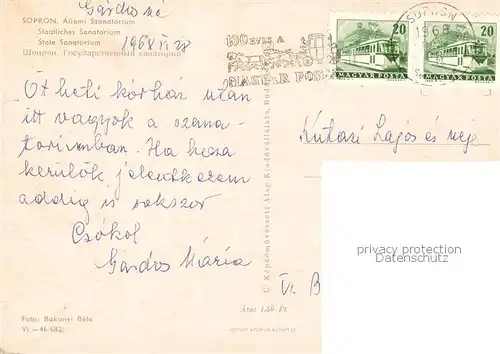 Gárdos né
SOPRON, Állami Szanatórium
Staatliches Sanatorium
State Sanatorium
Шопрон, Государственный санаторий
1968 VI 28
100 ÉVES A
MAGYAR POSTA
SOPRON
1968
20
MAGYAR POSTA
20
MAGYAR POSTA
Öt heti kórház után
itt vagyok a szana-
tóriumban. Ha haza
kerülök jelentkezem
addig is sokszor
Csókol
Gárdos Mária
Kutasi Lajos és neje
VI. B
privacy protection
Képzőművészeti Alap Kiadóvállalata, Bud
Ára: 1.50 Ft
Foto: Bakonyi Béla
VI.—46
OFFSET NYOMDA BUDAPEST